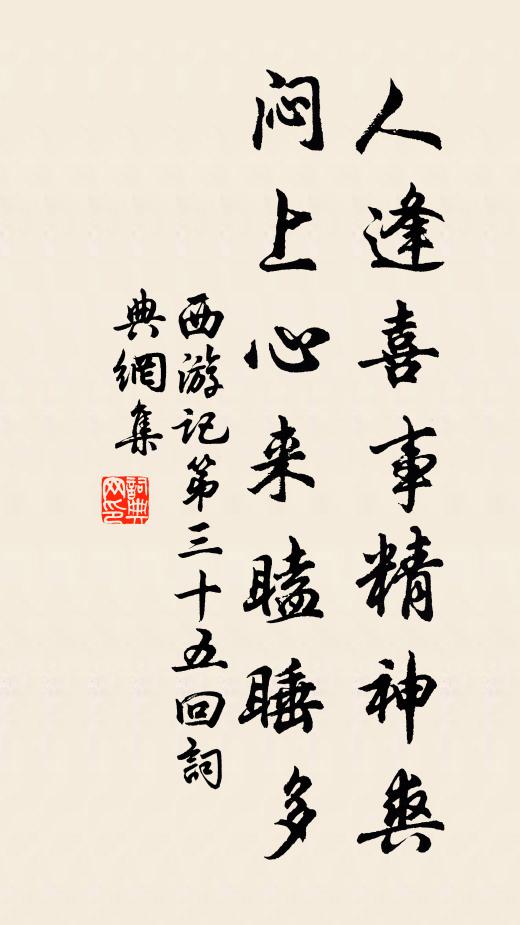 人逢喜事精神爽
闷上心来瞌睡多
西游记第三十五回詞
典網集
詞典网印